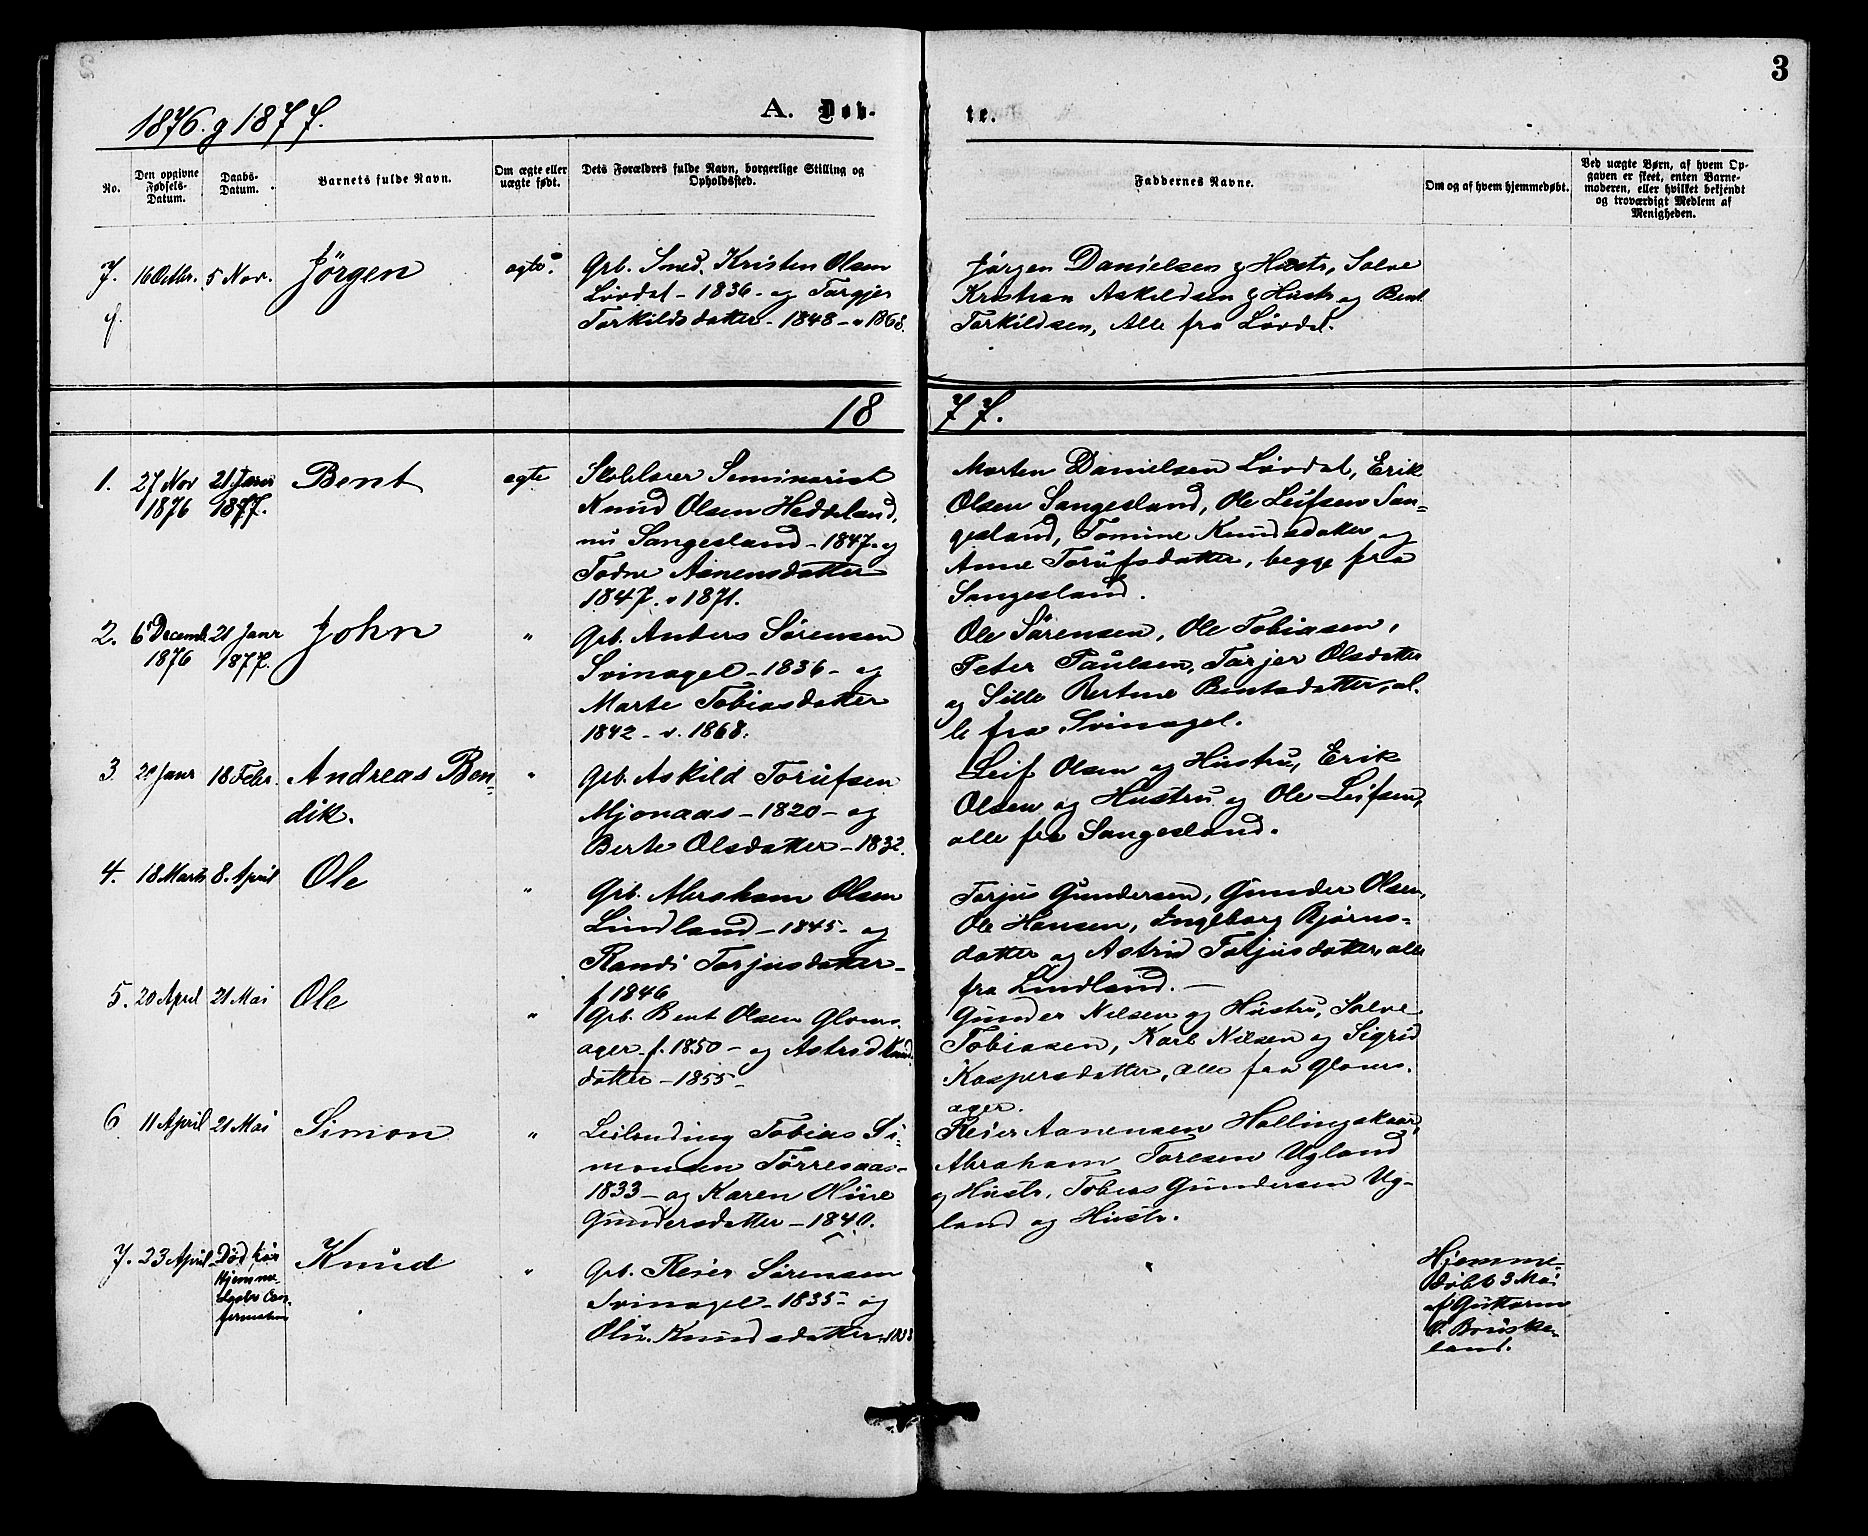 3
1876. g 1877.
A. Døb-
te.
No.
Den opgivne Fødsels-Datum.
Daabs-Datum.
Barnets fulde Navn.
Om ægte eller uægte født.
Dets Forældres fulde Navn, borgerlige Stilling og Opholdssted.
Faddernes Navne.
Om og af hvem hjemmedøbt.
Ved uægte Børn, af hvem Opgaven er skeet, enten Barnemoderen, eller hvilket bekjendt og troværdigt Medlem af Menigheden.
7. 16 Octbr. 5 Nov. Jörgen ægte.
Grb. Smed. Kristen Olsen
Lövdal - 1836 - og Targjer
Tarkildsdatter - 1848 - v 1868.
Jørgen Danielsen g Hustr, Salve
Kristian Askildsen g Hustr og Bent
Tarkildsen, Alle fra Lövdal.
1877.
1. 27 Nov 1876 21 Janr 1877. Bent ægte
Skolelærer Seminarist
Knud Olsen Heddeland,
nu Sangesland - 1847 - og
Todne Aanensdatter
1847. v 1871.
Morten Danielsen Lövdal, Erik
Olsen Sangesland, Ole Leifsen San-
gesland, Tomine Knudsdatter og
Anne Torufsdatter, begge fra
Sangesland.
2. 6 Decemb. 1876 21 Janr 1877. John "
Grb. Anders Sörensen
Svinagel - 1836 - og
Marte Tobiasdatter
1842 - v. 1868.
Ole Sörensen, Ole Tobiasen,
Peter Paulsen, Tarjer Olsdatter
og Sille Bertine Bentsdatter, al-
le fra Svinagel.
3 20 Janr 18 Febr. Andreas Ben-
dik. "
Grb. Askild Torufsen
Mjonaas - 1820 - og
Berte Olsdatter - 1832.
Leif Olsen og Hustru, Erik
Olsen og Hustru og Ole Leifsen,
alle fra Sangesland.
4. 18 Marts 8. April Ole "
Grb. Abraham Olsen
Lindland - 1845 - og
Randi Torjusdatter -
f 1846
Torjus Gundersen, Gunder Olsen,
Ole Hansen, Ingeborg Bjørns-
datter og Astrid Torjusdatter, alle
fra Lindland. -
5. 20 April 21 Mai Ole "
Grb. Bent Olsen Gloms-
ager - f. 1850 - og Astrid Knud-
datter - 1855 -
Gunder Nilsen og Hustru, Salve
Tobiasen, Karl Nilsen og Sigrid
Kaspersdatter, alle fra Gloms-
ager.
6 11 April 21 Mai Simon "
Leilending Tobias Si-
monsen Törresaas -
1833 - og Karen Oline
Gundersdatter - 1840.
Reier Aanensen Hollingskaar,
Abraham Toresen Ugland
g Hustr, Tobias Gundersen Ug-
land og Hustr.
7. 23 April Död för
Hjemme-
daabs Con-
firmation Knud "
Grb. Reier Sörensen
Svinagel - 1835 - og
Knudsdatter
Hjemme-
döbt 3 Mai
af Guttorm
O. Bruske-
land.